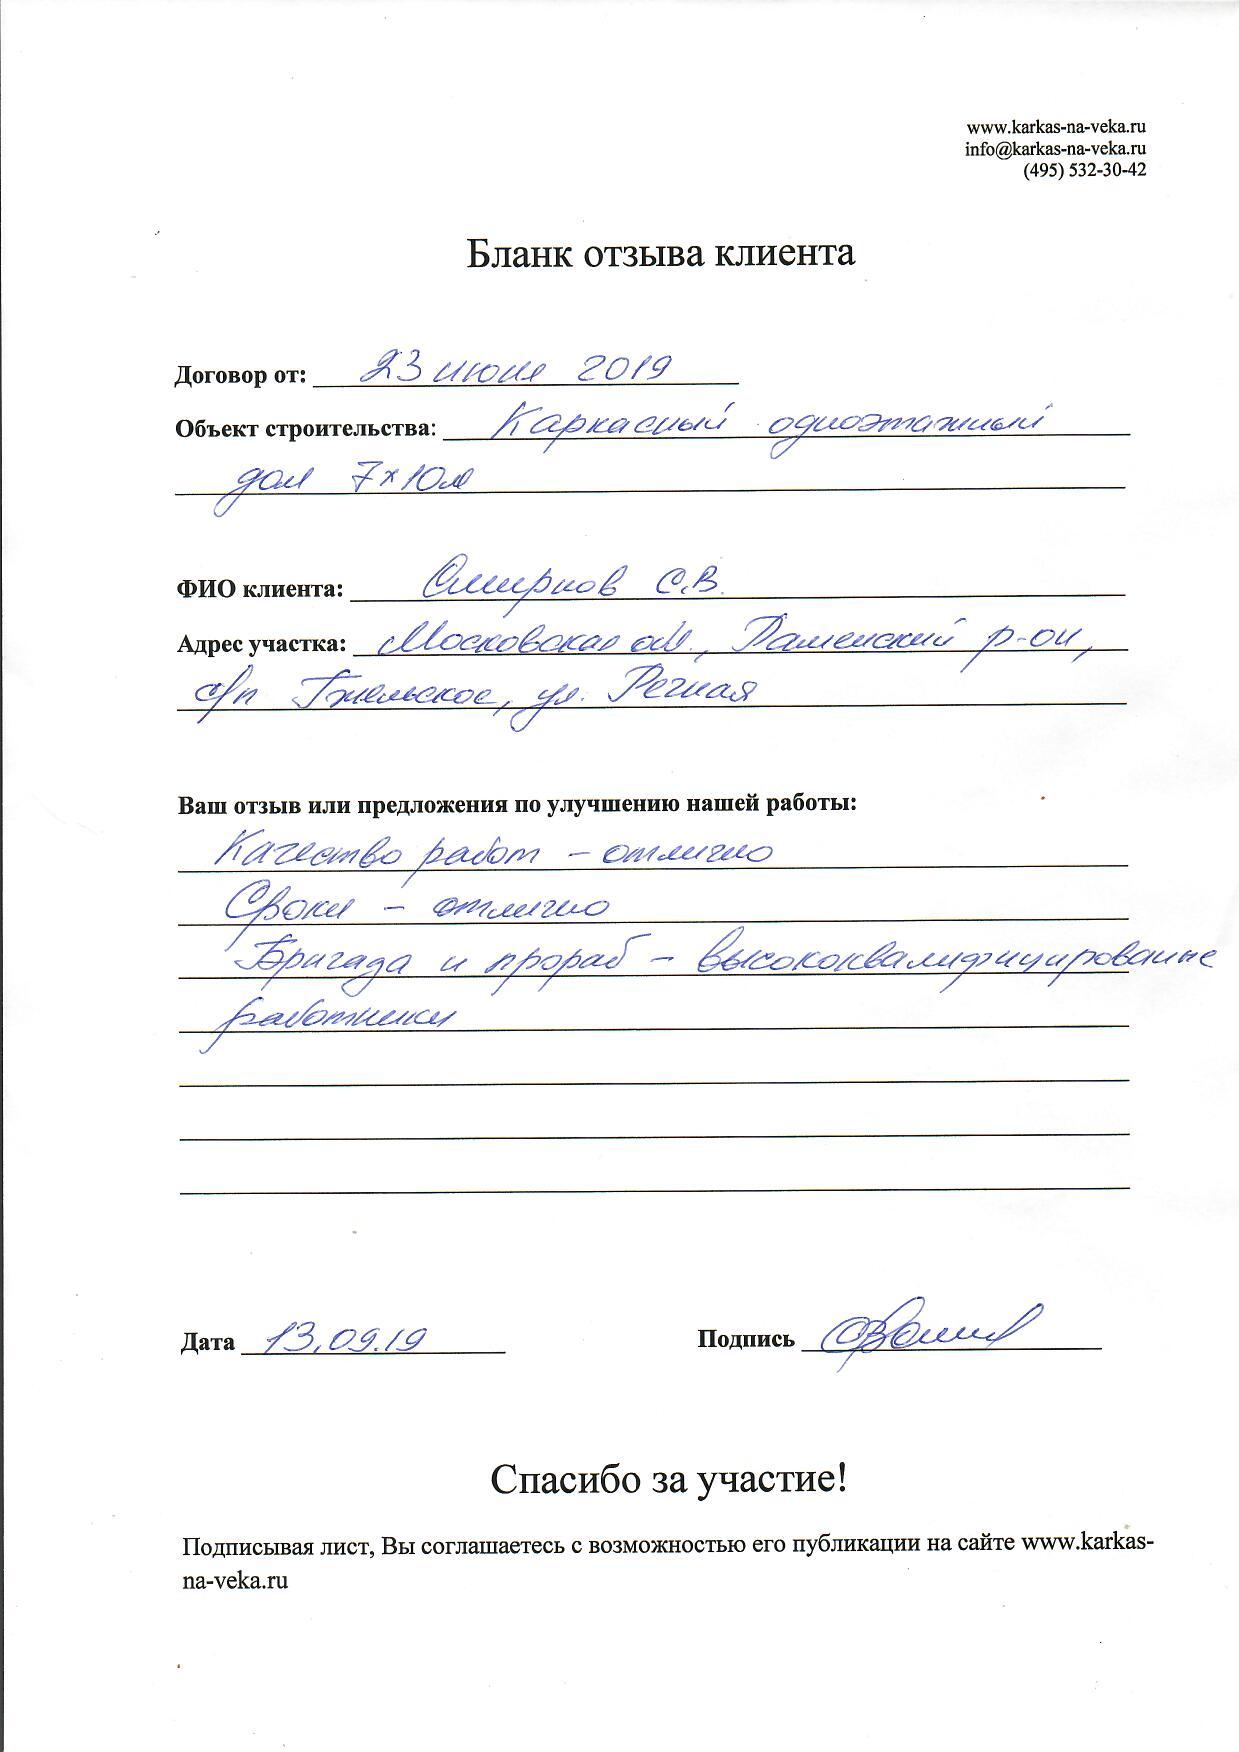 www.karkas-na-veka.ru
info@karkas-na-veka.ru
(495) 532-30-42
Бланк отзыва клиента
Договор от: 23 июня 2019
Объект строительства: Каркасный одноэтажный
дом 7х10м
ФИО клиента: Смирнов С.В.
Адрес участка: Московская обл., Раменский р-он,
с/п Гжельское, ул. Речная
Ваш отзыв или предложения по улучшению нашей работы:
Качество работ – отлично
Сроки – отлично
Бригада и прораб – высококвалифицированые
работники
Дата 13.09.19 Подпись
Спасибо за участие!
Подписывая лист, Вы соглашаетесь с возможностью его публикации на сайте www.karkas-
na-veka.ru